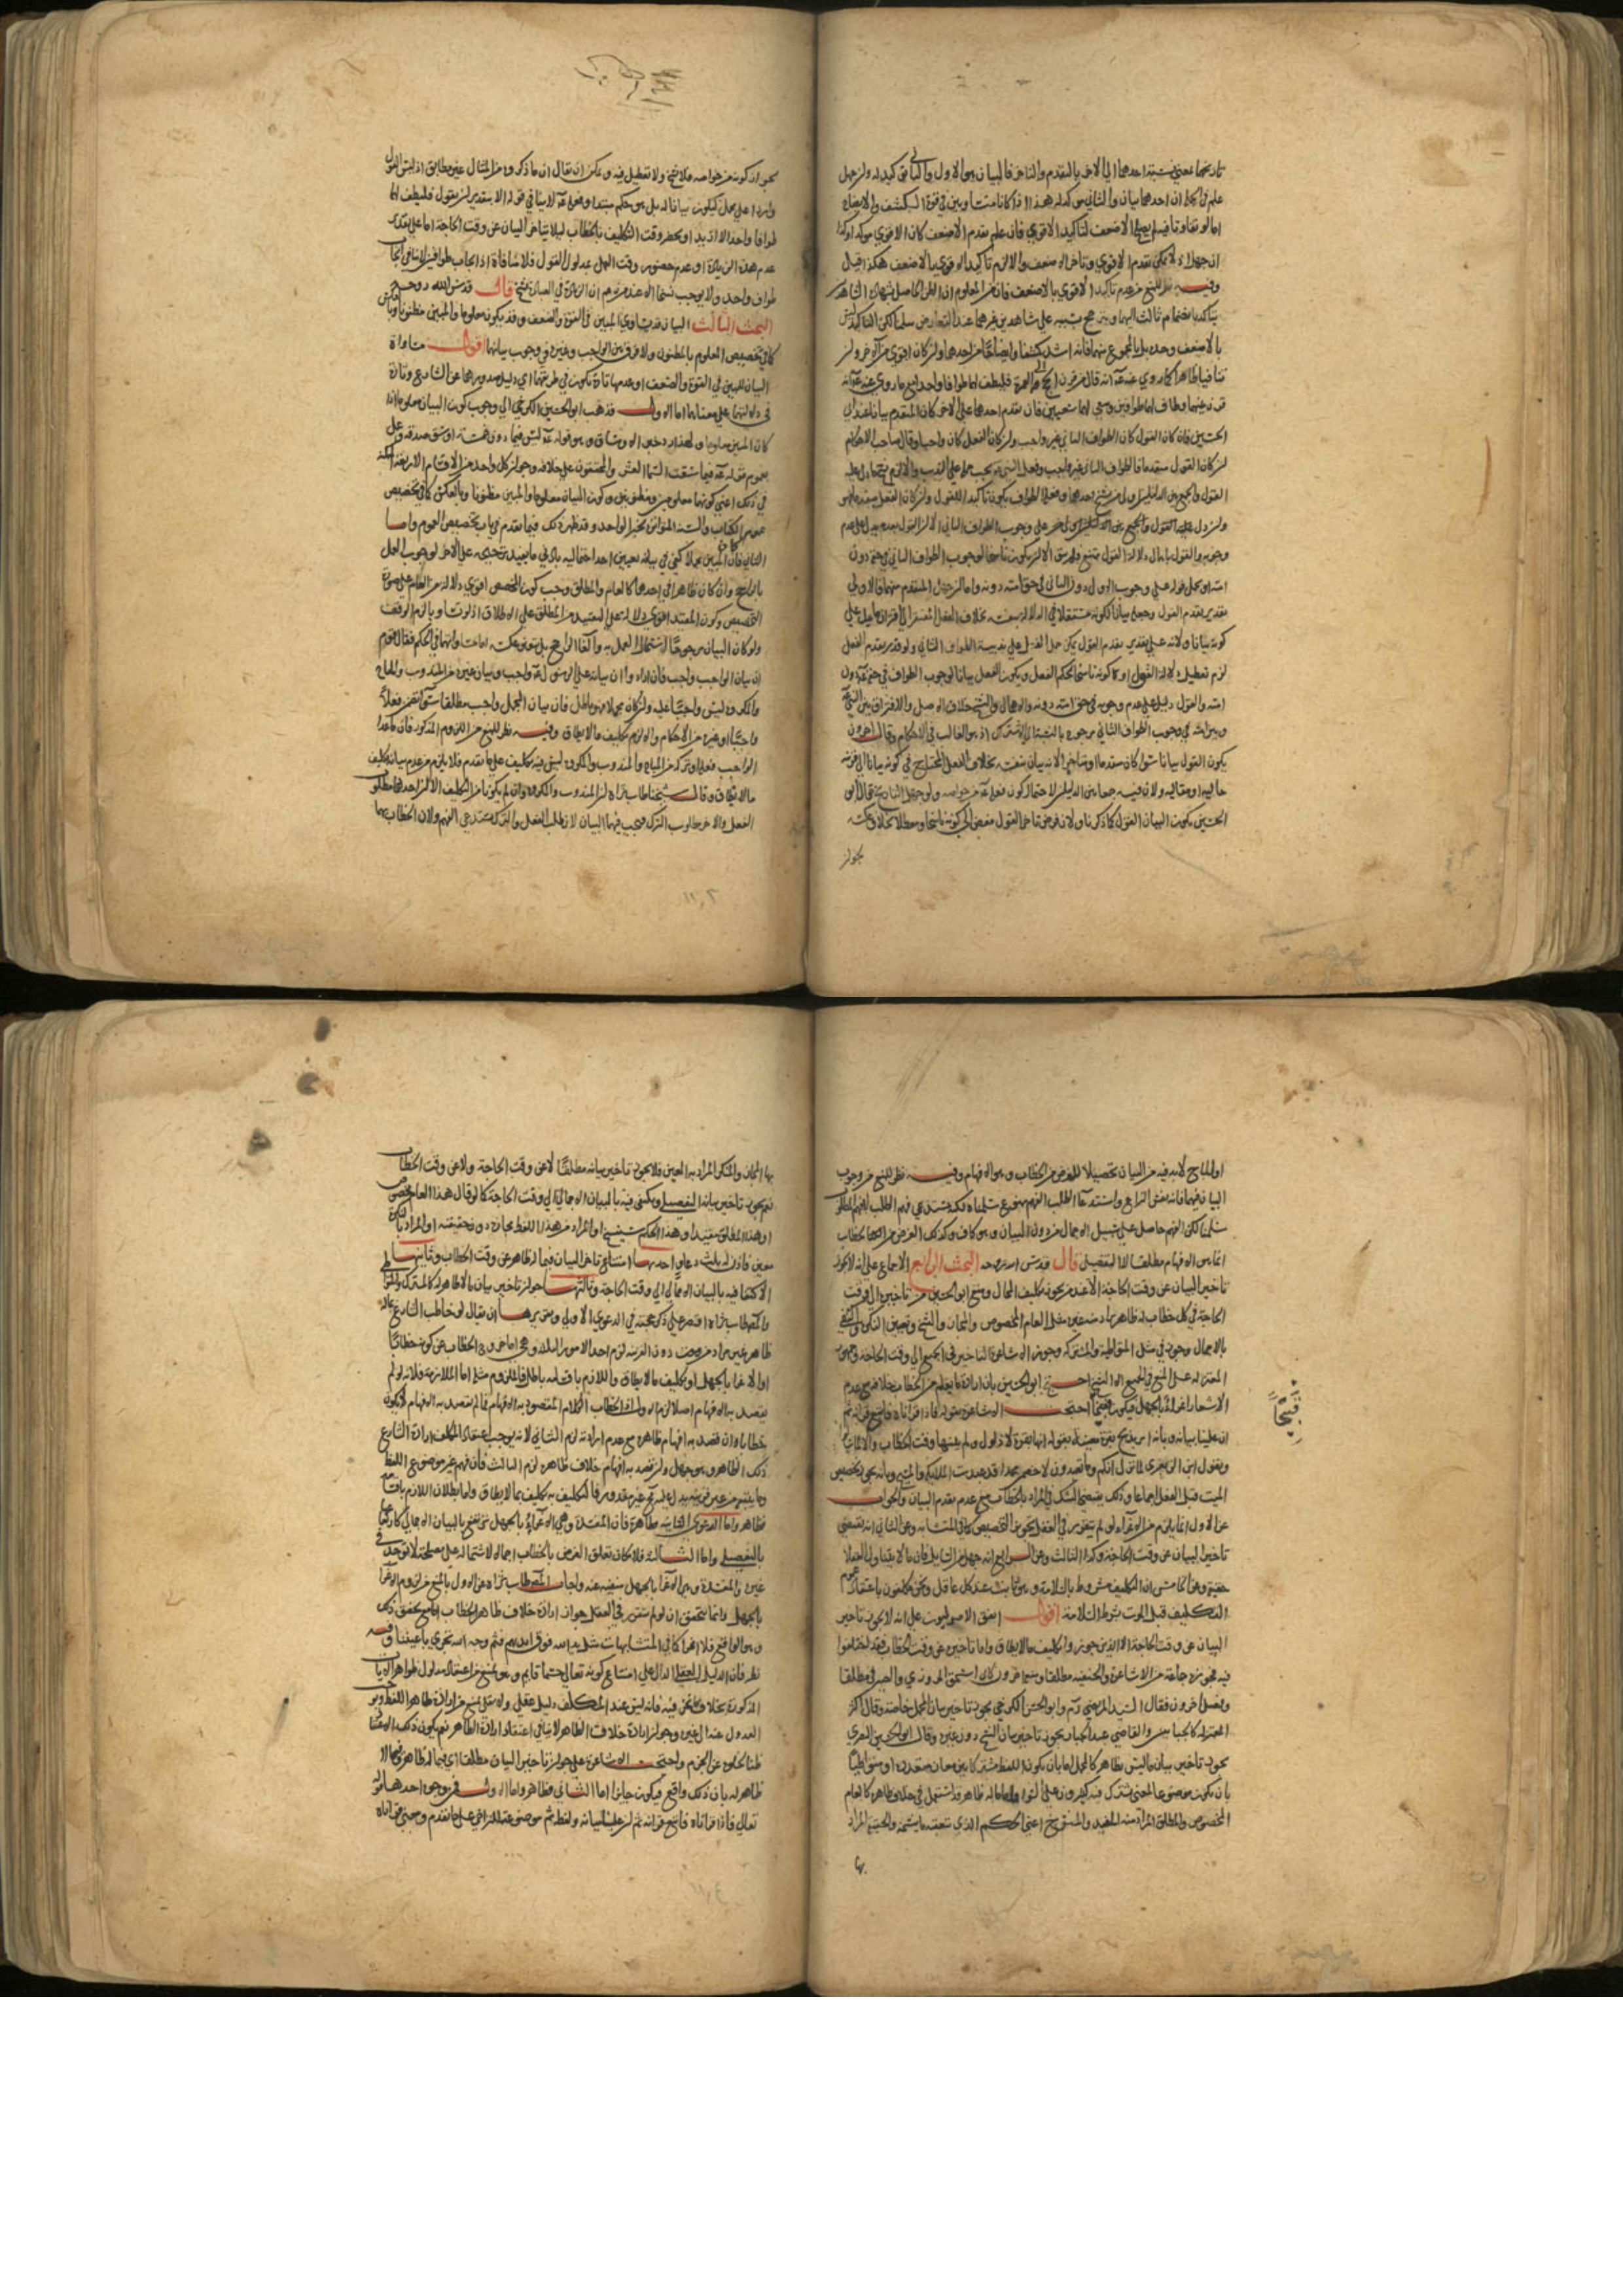 تاريخهما بمعنى نسبة احدهما الى الاخر بالتقدم والتاخر فالبيان هو الاول والثاني تاكيد له وان جهل
علم في الجملة ان احدهما بيان والثاني موكد له هذا اذا كانا متساويين في قوة الكشف والايضاح
اما لو تفاوتا فيه لم يصلح الاضعف لتاكيد الاقوي فان علم تقدم الاضعف كان الاقوي موكدا
وفيه نظر للمنع من عدم تاكيد الاقوي بالاضعف فان من المعلوم ان الظن الحاصل بشهادة الشاهدين
يتاكد بانضمام ثالث اليهما ويترجح به على شاهدين غيرهما عند التعارض سلمنا لكن التاكيد ليس
بالاضعف وحده بل بالمجموع منهما فانه اشد كشفا وايضاحا من احدهما وان كان اقوى من الاخر وان
تنافيا ظاهرا كما روي عنه عم انه قال من قرن الحج الى العمرة فليطف لهما طوافا واحدا مع ما روي عنه عم انه
قرن بينهما وطاف لهما طوافين وسعى لهما سعيين فان تقدم احدهما على الاخر كان المتقدم بيانا عند ابي
الحسين فان كان القول كان الطواف الثاني غير واجب وان كان الفعل كان واجبا وقال صاحب الاحكام
ان كان القول متقدما فالطواف الثاني غير واجب وفعل النبي عم يجب حمله على الندب
وجوبه والقول باهمال دلالة القول ممتنع فلم يبق الا ان يكون ناسخا لوجوب الطواف الثاني في حقه دون
كونه بيانا ولانه على تقدير تقدم القول يمكن حمل الفعل على ندبية الطواف الثاني ولو قدر تقدم الفعل
لزم تعطيل دلالة القول او كونه ناسخا لحكم الفعل ويكون الفعل بيانا لوجوب الطواف في حقه عم دون
امته والقول دليل على عدم وجوبه في حق امته دونه والاهمال والنسخ خلاف الاصل والافتراق بين النبي عم
وبين امته في وجوب الطواف الثاني مرجوح بالنسبة الى الاشتراك اذ هو الغالب في الاحكام وقال اخرون
يكون القول بيانا سواء كان متقدما او متاخرا لانه بيان بنفسه بخلاف الفعل المحتاج في كونه بيانا الى قرينة
حالية او مقالية ولان فيه جمعا بين الدليلين لاحتمال كون فعله عم من خواصه ولو جهل التاريخ قال ابو
الحسين يكون البيان القول كما ذكرنا ولان فرض تاخر القول مفض الى كونه ناسخا او معطلا بخلاف عكسه
لجواز
لجواز كونه من خواصه فلا نسخ ولا تعطيل فيه ويمكن ان يقال ان ما ذكروه من المثال غير مطابق اذ ليس القول
واردا على مجمل ليكون بيانا له بل هو حكم مبتدا وفعله عم لا ينافي قوله الا بتقدير ان يقول فليطف لهما
طوافا واحدا لا ازيد او يحضر وقت التكليف بالخطاب ليلا يتاخر البيان عن وقت الحاجة اما على تقدير
عدم هذه الزيادة او عدم حضور وقت العمل بمدلول القول فلا منافاة اذ ايجاب طوافين لا ينافي ايجاب
طواف واحد ولا يوجب نسخا الا عند من زعم ان الزيادة في العبادة نسخ قال قدس الله روحه
البحث الثالث البيان قد يساوي المبين في القوة والضعف وقد يكون معلوما والمبين مظنونا وبالعكس
كما في تخصيص المعلوم بالمظنون ولا فرق بين الواجب وغيره في وجوب بيانهما اقول مساواة
البيان للمبين في القوة والضعف وعدمها تارة يكون في طريقهما اي دليل صدورهما عن الشارع وتارة
في دلالتهما على معناهما اما الاول فذهب ابو الحسن الكرخي الى وجوب كون البيان معلوما اذا
بعموم قوله عم فيما سقت السماء العشر والمحققون على خلافه وجواز كل واحد من الاقسام الاربعة الممكنة
في ذلك اعني كونهما معلومين ومظنونين وكون البيان معلوما والمبين مظنونا وبالعكس كما في تخصيص
عموم الكتاب والسنة المتواترة بخبر الواحد وقد ظهر ذلك فيما تقدم في باب تخصيص العموم واما
الثاني فان كان المبين مجملا كفى في بيانه تعيين احد احتماليه بادنى ما يفيد ترجيحه على الاخر لوجوب العمل
بالراجح وان كان ظاهرا في احدهما كالعام والمطلق وجب كون المخصص اقوى دلالة من العام على صورة
التخصيص وكون المقيد اقوى دلالة على التقييد من المطلق على الاطلاق اذ لو تساويا لزم الوقف
ان بيان الواجب واجب
والمكروه ليس واجبا عليه وان كان مجملا وهو باطل فان بيان المجمل واجب مطلقا سواء تضمن فعلا
واجبا او غيره من الاحكام والا لزم تكليف ما لا يطاق وفيه نظر للمنع من اللزوم المذكور فان ما عدا
الواجب فعلا وتركا من المباح والمندوب والمكروه ليس فيه تكليف على ما تقدم فلا يلزم من عدم بيانه تكليف
ما لا يطاق وقال شيخنا طاب ثراه ان المندوب والمكروه وان لم يكونا من التكليف الا ان احدهما مطلوب
الفعل والاخر مطلوب الترك فيجب فيهما البيان لان طلب الفعل والترك يستدعي الفهم ولان الخطاب بهما
او المباح لا بد فيه من البيان تحصيلا للغرض من الخطاب وهو الافهام وفيه نظر للمنع من وجوب
البيان فيهما فانه نفس النزاع واستدعاء الطلب الفهم ممنوع سلمناه لكنه يستدعي فهم الطلب لا فهم المطلوب
سلمنا لكن الفهم حاصل على سبيل الاجمال من دون البيان وهو كاف وكذلك الغرض من
انما هو الافهام مطلقا لا التفصيل قال قدس الله روحه البحث الرابع الاجماع على انه لا يجوز
تاخير البيان عن وقت الحاجة الا عند من يجوز تكليف المحال ومنع ابو الحسين من تاخيره الى وقت
الحاجة في كل خطاب له ظاهر يراد منه غيره مثل العام المخصوص والمجاز والنسخ وتعيين النكرة واكتفى
بالاجمال وجوز في مثل المتواطية والمشترك وجوز الاشاعرة التاخير في الجميع الى وقت الحاجة وجمهور
المعتزلة على المنع في الجميع الا النسخ احتج ابو الحسين بان ارادة ما يعلم من الخطاب خلافه مع عدم
الاشعار اغراء بالجهل فيكون قبيحا احتجت الاشاعرة بقوله فاذا قراناه فاتبع قرانه ثم
قبيحا
ان علينا بيانه وبانه امر بذبح بقرة معينة لقوله انها بقرة لا ذلول ولم يبينها وقت الخطاب
وبقول ابن الزبعرى لما نزل انكم وما تعبدون لاخصمن محمدا قد عبدت الملائكة والمسيح وبانه يجوز تخصيص
الميت قبل الفعل اجماعا وذلك يقتضي الشك في المراد بالخطاب مع عدم تقدم البيان والجواب
عن الاول انما يلزم من الاغراء لو لم يتقرر في العقل تجويز التخصيص كما في المتشابه وعن الثاني انه يقتضي
تاخير البيان عن وقت الحاجة وكذا الثالث وعن الرابع انه جهل من السايل فان ما لا يتناول العقلاء
حقيقة وعن الخامس ان التكليف مشروط بالسلامة وهو ثابت عند كل عاقل ونحن مكلفون باعتقاد عموم
التكليف قبل الموت بشرط السلامة اقول اتفق الاصوليون على انه لا يجوز تاخير
البيان عن وقت الحاجة الا الذين جوزوا تكليف ما لا يطاق واما تاخيره عن وقت الخطاب فقد اختلفوا
فيه فجوزه جماعة من الاشاعرة والحنفية مطلقا ومنعه اخرون كابي اسحق المروزي والصيرفي مطلقا
وفصل اخرون فقال السيد المرتضى رحمه وابو الحسن الكرخي يجوز تاخير بيان المجمل خاصة وقال اكثر
المعتزلة كالجبائيين والقاضي عبد الجبار يجوز تاخير بيان النسخ دون غيره وقال ابو الحسين البصري
يجوز تاخير بيان ما ليس بظاهر كالمجمل اما بان يكون اللفظ مشتركا بين معان متعددة او متواطيا
بان يكون موضوعا لمعنى مشترك فيه كثيرون على السواء واما ما له ظاهر قد استعمل في خلاف ظاهره كالعام
المخصوص والمطلق المراد منه المقيد والمنسوخ اعني الحكم الذي يتعقبه ما ينسخه والحقيقة المراد
بها
بها المجاز والنكرة المراد بها المعين فلا يجوز تاخير بيانه مطلقا لا عن وقت الحاجة ولا عن وقت الخطاب
نعم يجوز تاخير بيانه التفصيلي ويكتفى فيه بالبيان الاجمالي الى وقت الحاجة كما لو قال هذا العام مخصوص
او هذا المطلق مقيد او هذا الحكم سينسخ او المراد من هذا اللفظ مجازه دون حقيقته او المراد بالنكرة
معين فاذن له ثلث دعاو احدها امتناع تاخير البيان فيما له ظاهر عن وقت الخطاب وثانيها
الاكتفاء فيه بالبيان الاجمالي الى وقت الحاجة وثالثها جواز تاخير بيان ما لا ظاهر له كالمشترك والمتواطي
والمصنف طاب ثراه اقتصر على ذكر حجته في الدعوى الاولى وتقريرها ان يقال لو خاطب الشارع بما له
ظاهر غير مراد من دون القرينة لزم احد الامور الثلثة وهي اما خروج الخطاب عن كونه خطابا
او الاغراء بالجهل او تكليف ما لا يطاق واللازم باقسامه باطل فالملزوم مثله اما الملازمة فلانه لو لم
يقصد به الافهام اصلا لزم الاول لان الخطاب الكلام المقصود به الافهام فما لم يقصد به الافهام لا يكون
خطابا وان قصد به افهام ظاهره مع عدم ارادته لزم الثاني لانه يوجب اعتقاد المكلف ارادة الشارع
ذلك الظاهر وهو جهل وان قصد به افهام خلاف ظاهره لزم الثالث فان فهم غير موضوع اللفظ
فظاهر واما الدعوى الثانية فظاهرة فان المفسدة وهي الاغراء بالجهل تنتفي بالبيان الاجمالي كارتفاعها
بالتفصيلي واما الثالثة فلامكان تعلق الغرض بالخطاب اجمالا لاشتماله على مصلحة لا توجد في
غيره والمفسدة وهي الاغراء بالجهل منتفية عنه واجاب المصنف طاب ثراه عن الاول بالمنع من لزوم الاغراء
بالجهل وانما يتحقق ان لو لم يتقرر في العقل جواز ارادة خلاف ظاهر الخطاب اما مع تحقق ذلك
وهو الواقع فلا اغراء كما في المتشابهات مثل يد الله فوق ايديهم فثم وجه الله تجري باعيننا وفيه
نظر فان الدليل العقلي الدال على امتناع كونه تعالى جسما قايم وهو يمنع من اعتقاد مدلول ظواهر الايات
المذكورة بخلاف ما نحن فيه فانه ليس عند المكلف دليل عقلي ولا نقلي يمنع من ارادة ظاهر اللفظ
العدول عنه الى غيره وجواز ارادة خلاف الظاهر لا ينافي اعتقاد ارادة الظاهر نعم يكون ذلك الاعتقاد
ظنا لخلوه عن الجزم واحتجت الاشاعرة على جواز تاخير البيان مطلقا اي فيما له ظاهر وفيما لا
ظاهر له بان ذلك واقع فيكون جايزا اما الثاني فظاهر واما الاول فمن وجوه احدها قوله
تعالى فاذا قراناه فاتبع قرانه ثم ان علينا بيانه ولفظة ثم موضوعة للتراخي على ما تقدم ومعنى قراناه